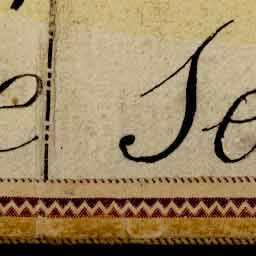 e Se